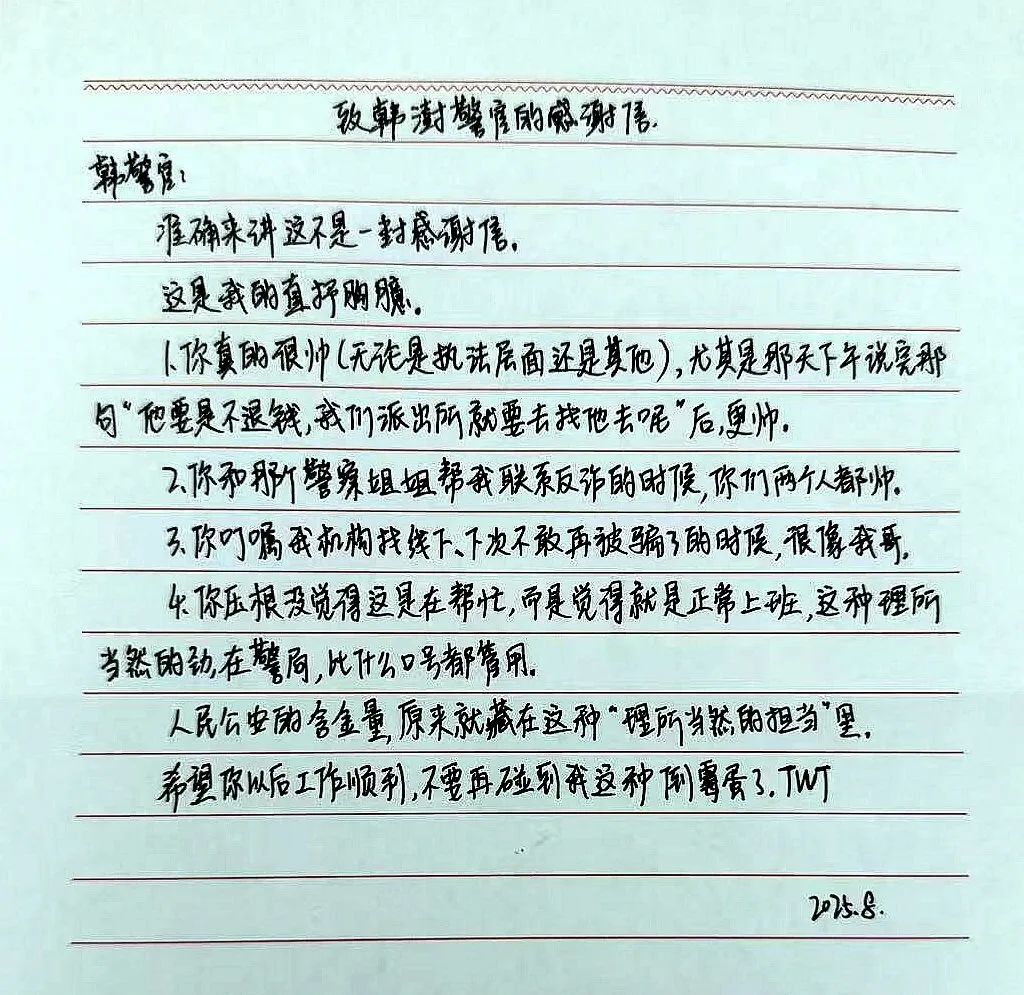 致韩澍警官的感谢信.
韩警官:
准确来讲这不是一封感谢信.
这是我的直抒胸臆.
1.你真的很帅(无论是执法层面还是其他),尤其是那天下午说完那
句“他要是不退钱,我们派出所就要去找他去呢”后,更帅.
2.你和那个警察姐姐帮我联系反诈的时候,你们两个人都帅.
3.你叮嘱我机构找线下、下次不敢再被骗了的时候,很像我哥.
4.你压根没觉得这是在帮忙,而是觉得就是正常上班,这种理所
当然的劲,在警局,比什么口号都管用.
人民公安的含金量,原来就藏在这种“理所当然的担当”里.
希望你以后工作顺利,不要再碰到我这种倒霉蛋了.TWT
2025.8.